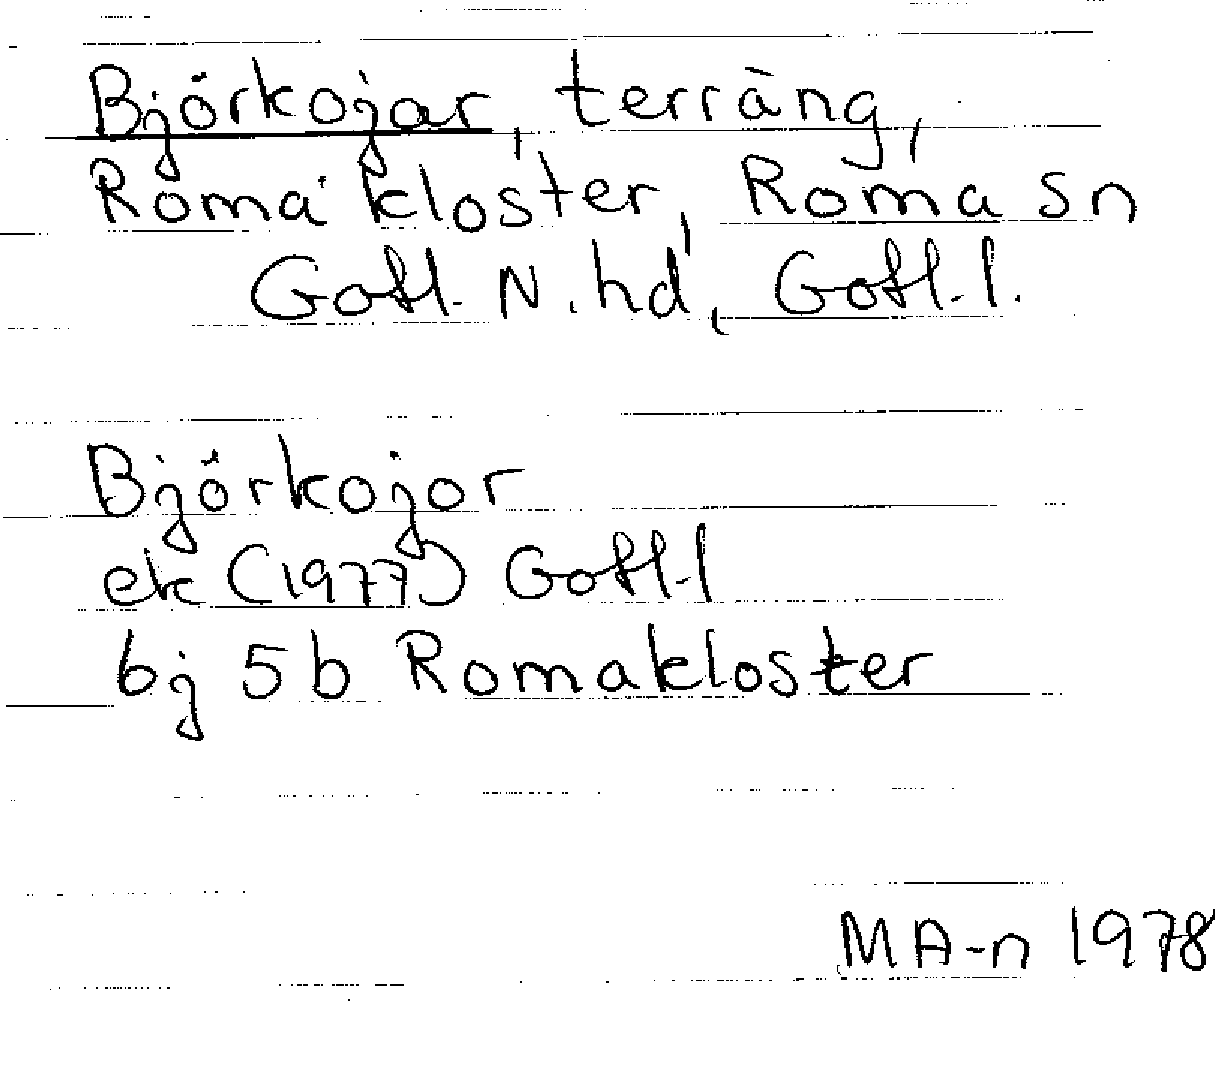 Björkojar, terräng,
Roma kloster, Roma sn
Gotl. N. hd, Gotl. l.
Björkojor
ek (1977) Gotl. l
6j 5b Romakloster
MA-n 1978